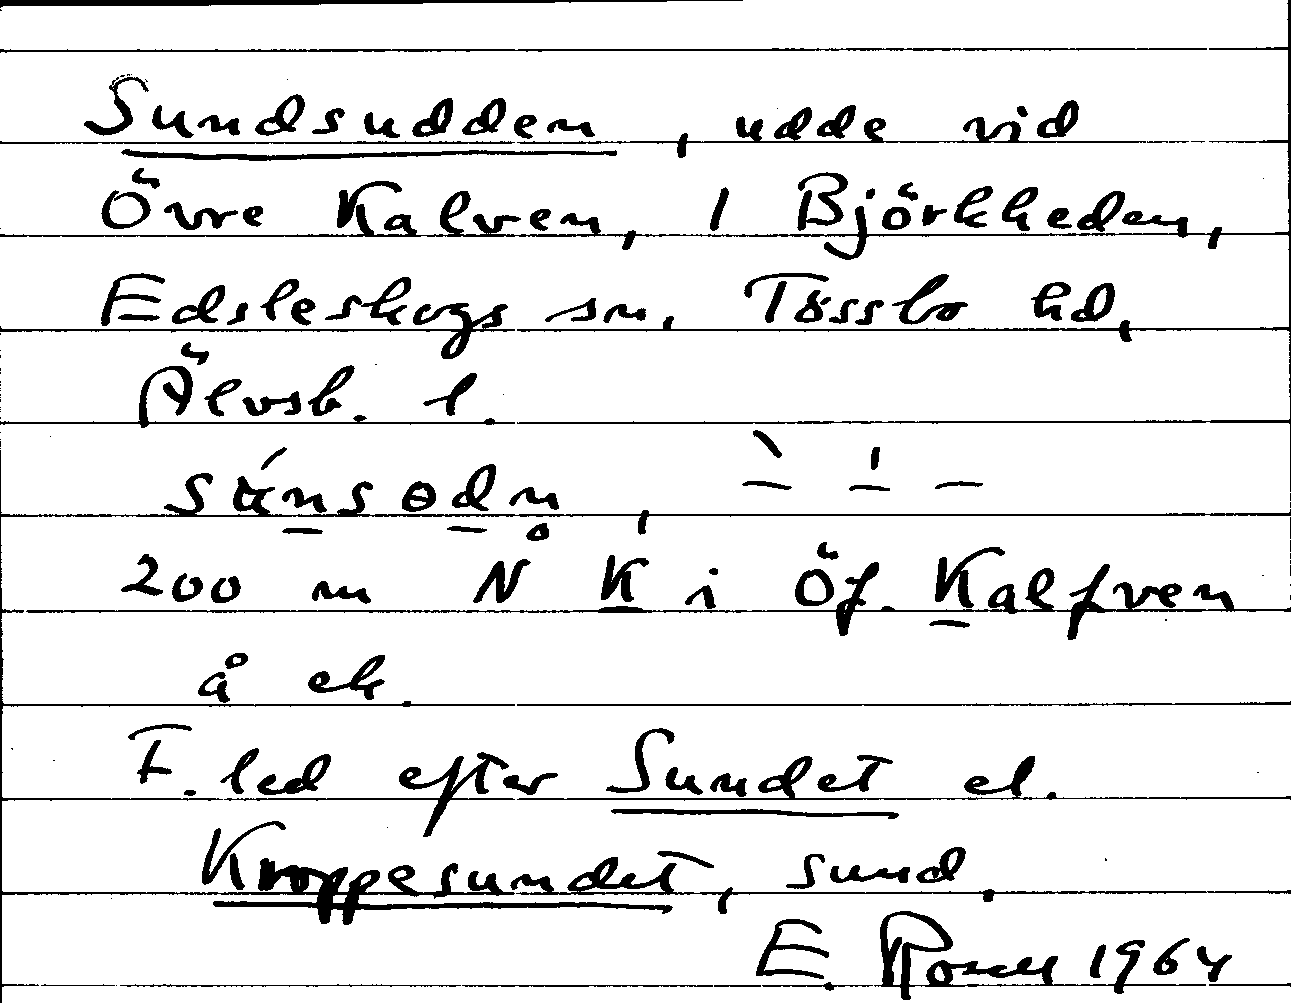 Sundsudden, udde vid
Övre Kalven, 1 Björkheden,
Edsleskogs sn. Tössbo hd,
Älvsb. l.
200 m N K i Öf. Kalfven
å ek.
F. led efter Sundet el.
Kroppesundet, sund.
E. Rosell 1964